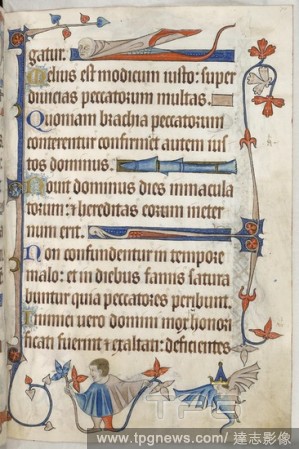 gatur.
Melius est modicum iusto: super
diuicias peccatorum multas.
Quoniam brachia peccatorum
conterentur confirmet autem ius
tos dominus.
Nouit dominus dies immacula
torum: et hereditas eorum in eter
num erit.
Non confundentur in tempore
malo: et in diebus famis satura
buntur quia peccatores peribunt.
Inimici uero domini mox honori
ficati fuerint et exaltati: deficientes
TPG
www.tpgnews.com/ 達志影像